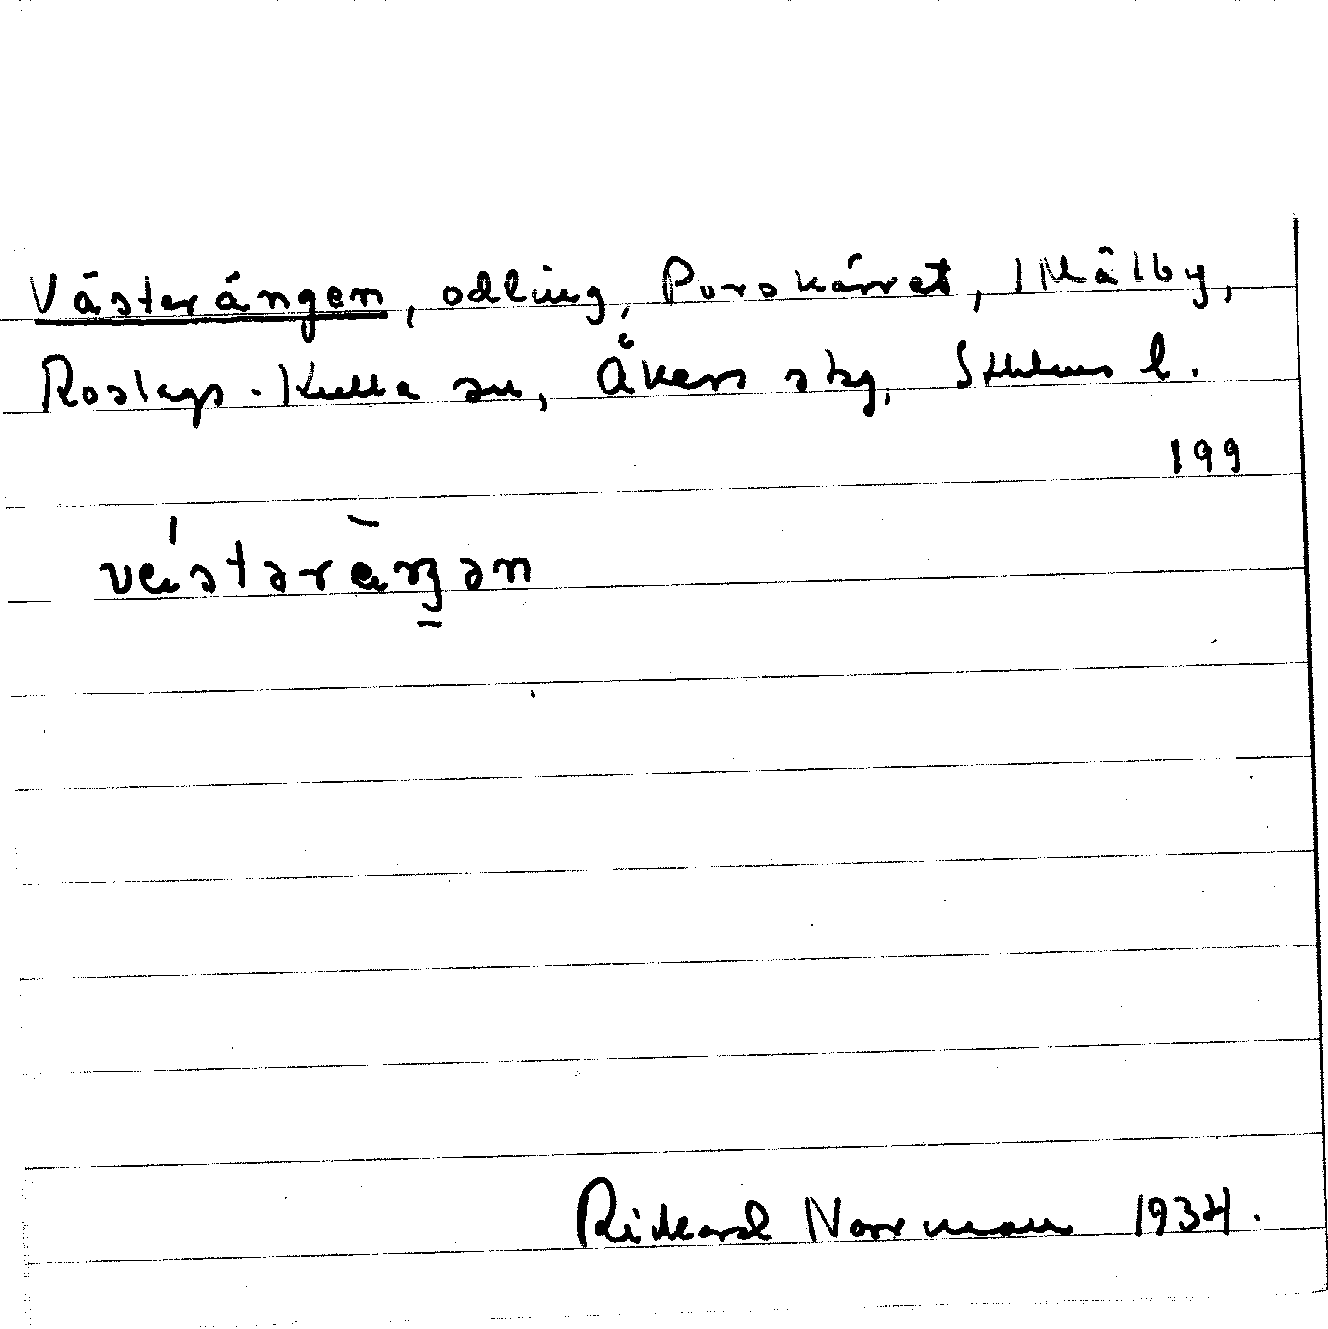 Västerängen, odling, Porskärret, Målby,
Roslags-Kulla sn, Åkers skg, Sthlms l.
199
västəräŋən
Rickard Norrman 1934.